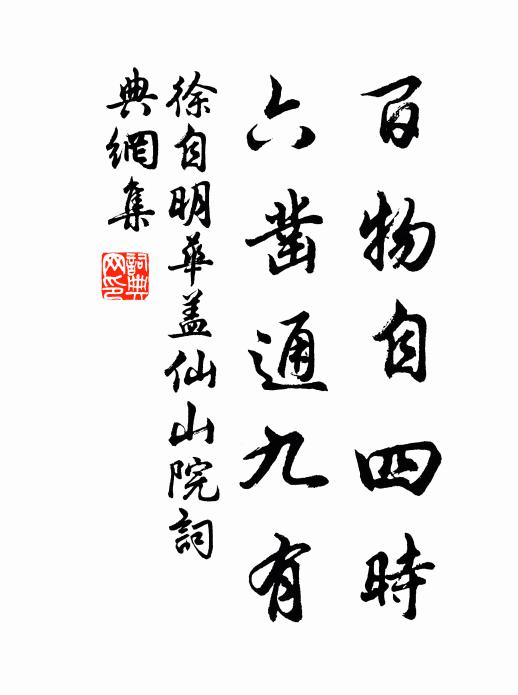 百物自四時
六鑿通九有
徐自明華盖仙山院詞
典網集
詞典
网印